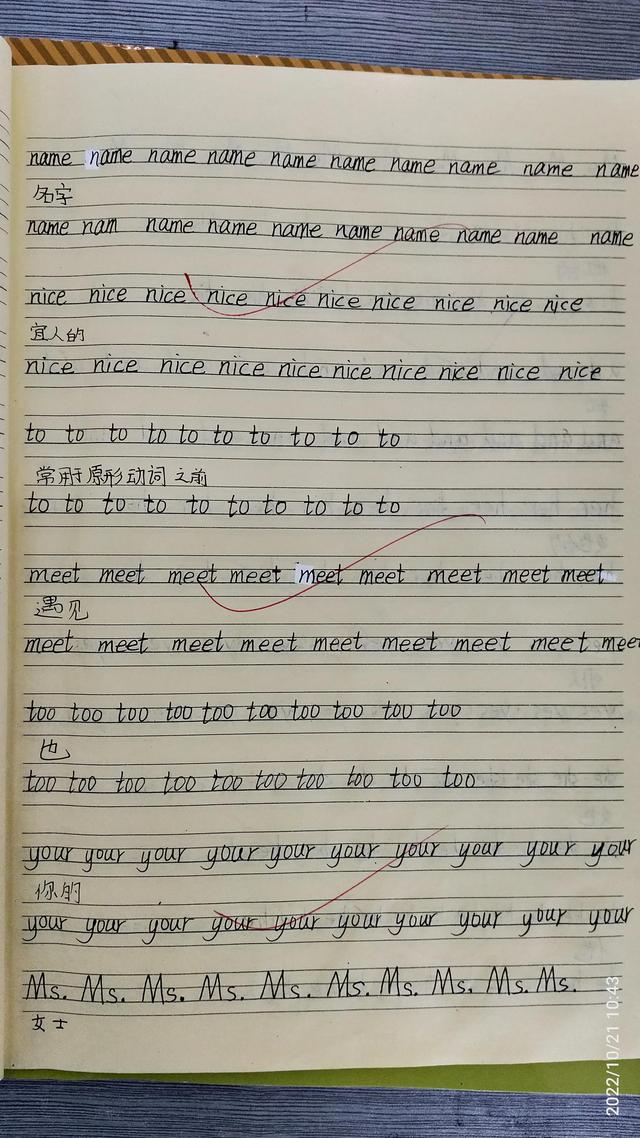 name name name name name name name name name name
名字
name nam name name name name name name name name
nice nice nice nice nice nice nice nice nice nice
宜人的
nice nice nice nice nice nice nice nice nice nice
to to to to to to to to to to
常用于原形动词之前
to to to to to to to to to to
meet meet meet meet meet meet meet meet meet
遇见
meet meet meet meet meet meet meet meet meet
too too too too too too too too too too
也
too too too too too too too too too too
your your your your your your your your your your
你的
your your your your your your your your your your
Ms. Ms. Ms. Ms. Ms. Ms. Ms. Ms. Ms. Ms.
女士
2022/10/21 10:43